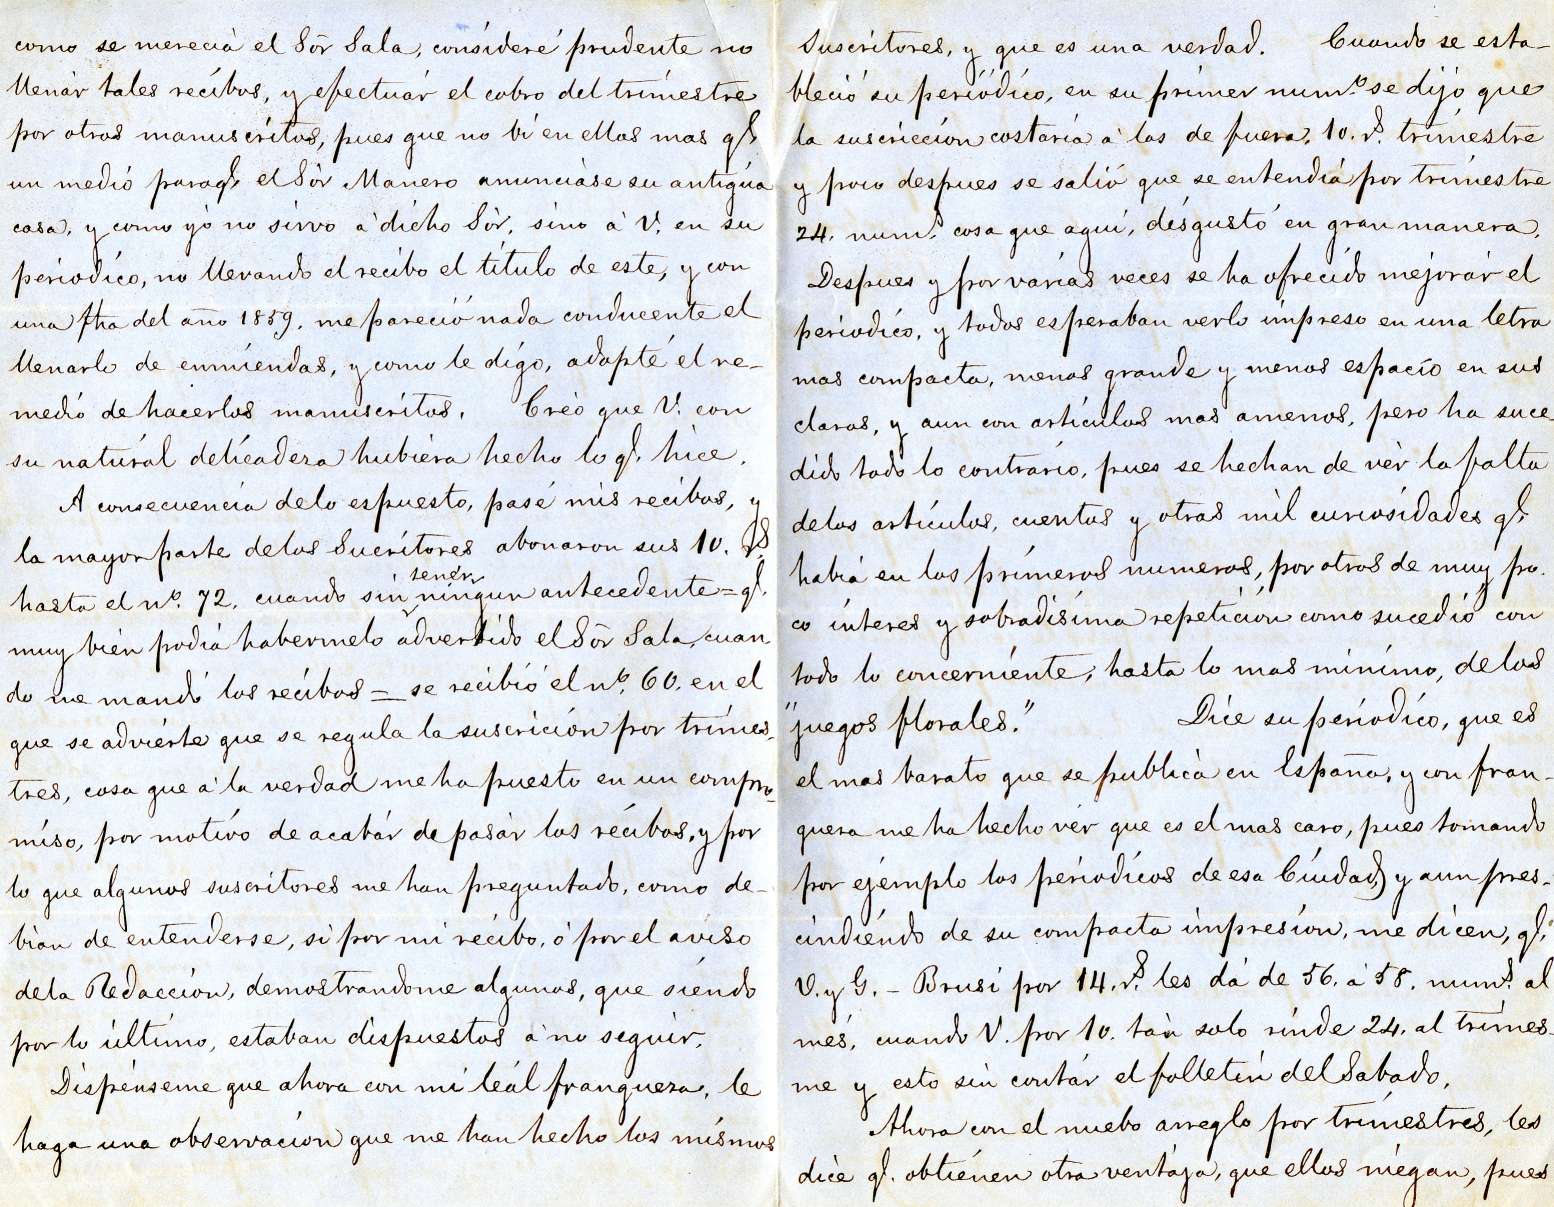 como se merecia el Sör Sala, consideré prudente no
llenár tales recibos, y efectuár el cobro del trimestre
por otros manuscritos, pues que no bi en ellos mas q.e
un medio paraq.e el Sör Manero anunciase su antigüa
casa, y como yo no sirvo à dicho Sör, sino à V. en su
periodico, no llevando el recibo el titulo de este, y con
una fha del año 1859. me pareció nada conducente el
llenarlo de enmiendas, y como le digo, adopté el re-
medio de hacerlos manuscritos. Creo que V. con
su naturál delicadeza hubiera hecho lo q.e hice.
A consecuencia delo espuesto, pasé mis recibos, y
la mayor parte delos Sucritores abonaron sus 10. r.s
hasta el n.o 72. cuando sin tener ningun antecedente = q.e
muy bien podia habermelo advertido el Sör Sala, cuan
do me mandó los recibos = se recibió el n.o 60. en el
que se advierte que se regula la suscricion por trimes-
tres, cosa que à la verdad me ha puesto en un compro-
miso, por motivo de acabár de pasár los recibos, y por
lo que algunos suscritores me han preguntado, como de-
bian de entenderse, si por mi recibo, ó por el aviso
dela Redaccion, demostrandome algunos, que siendo
por lo último, estaban dispuestos à no seguir.
Dispénseme que ahora con mi leál franqueza, le
haga una observacion que me han hecho los mismos
Suscritores, y que es una verdad. Cuando se esta-
bleció su periódico, en su primer num.o se dijo que
la suscriccion costaria à los de fuera, 10. r.s trimestre
y poco despues se salió que se entendia por trimestre
24. num.s cosa que aqui, disgustó en gran manera.
Despues y por varias veces se ha ofrecido mejorár el
periodico, y todos esperaban verlo impreso en una letra
mas compacta, menos grande y menos espacio en sus
claros, y aun con articulos mas amenos, pero ha suce-
dido todo lo contrario, pues se hechan de vér la falta
delos articulos, cuentos y otras mil curiosidades q.e
habia en los primeros numeros, por otros de muy po-
co interes y sobradisima repeticion como sucedió con
todo lo concerniente, hasta lo mas minimo, delos
"juegos florales." Dice su periodico, que es
el mas barato que se publica en España, y con fran-
queza me ha hecho vér que es el mas caro, pues tomando
por ejemplo los periodicos de esa Ciudad, y aun pres-
cindiendo de su compacta impresion, me dicen, q.e
V. y G. - Brusi por 14. r.s les dá de 56. à 58. num.s al
més, cuando V. por 10. tan solo rinde 24. al trimes-
me y esto sin contár el folletin del Sabado.
Ahora con el nuebo arreglo por trimestres, les
dice q.e obtienen otra ventaja, que ellos niegan, pues